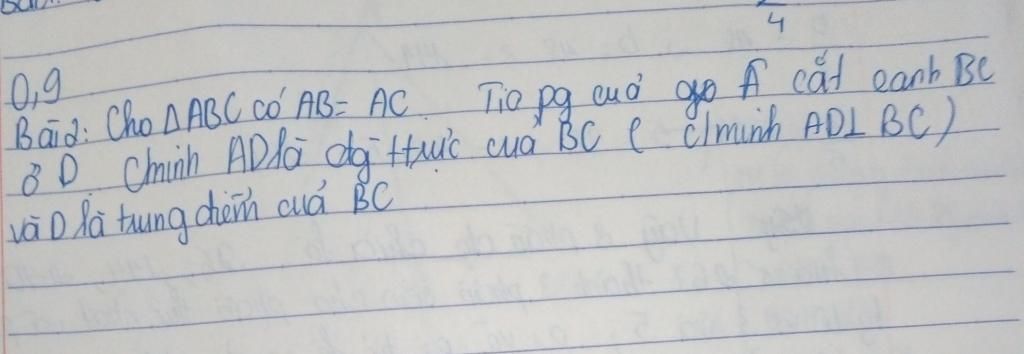 4
0,9
Bài 2: Cho △ABC có AB = AC. Tia pg cuả góc Â cắt cạnh BC
ở D. Cminh AD là đg ttrực cuả BC ( c/minh AD⊥BC)
và D là trung điểm cuả BC